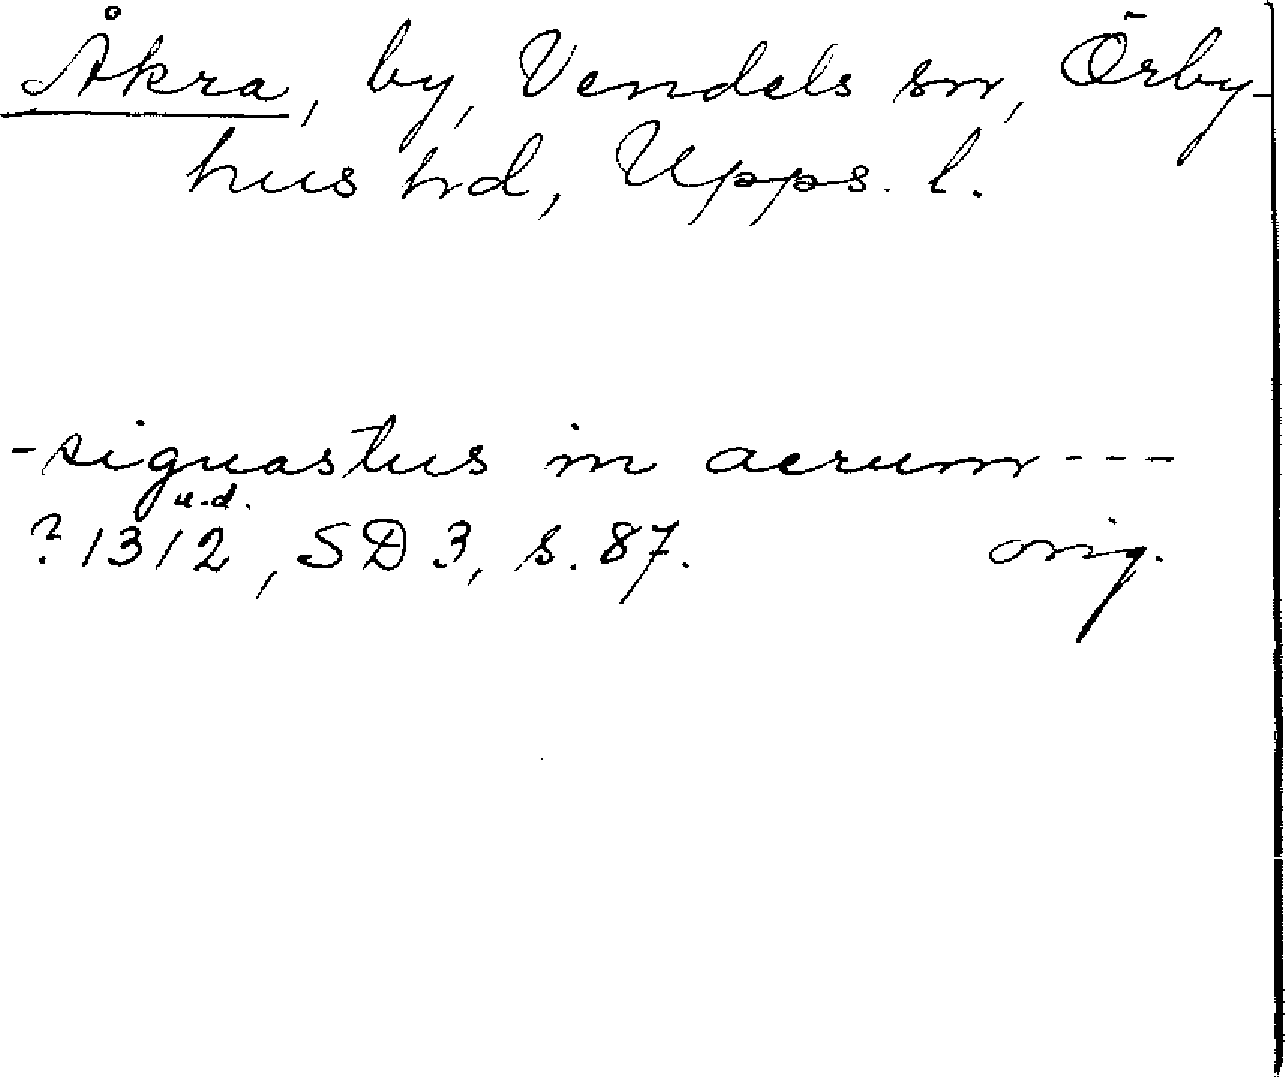 Åkra, by, Vendels sn, Örby-
hus hd, Upps. l.
-siguastus in acrum---
u.d.
? 1312, SD 3, s. 87. orig.